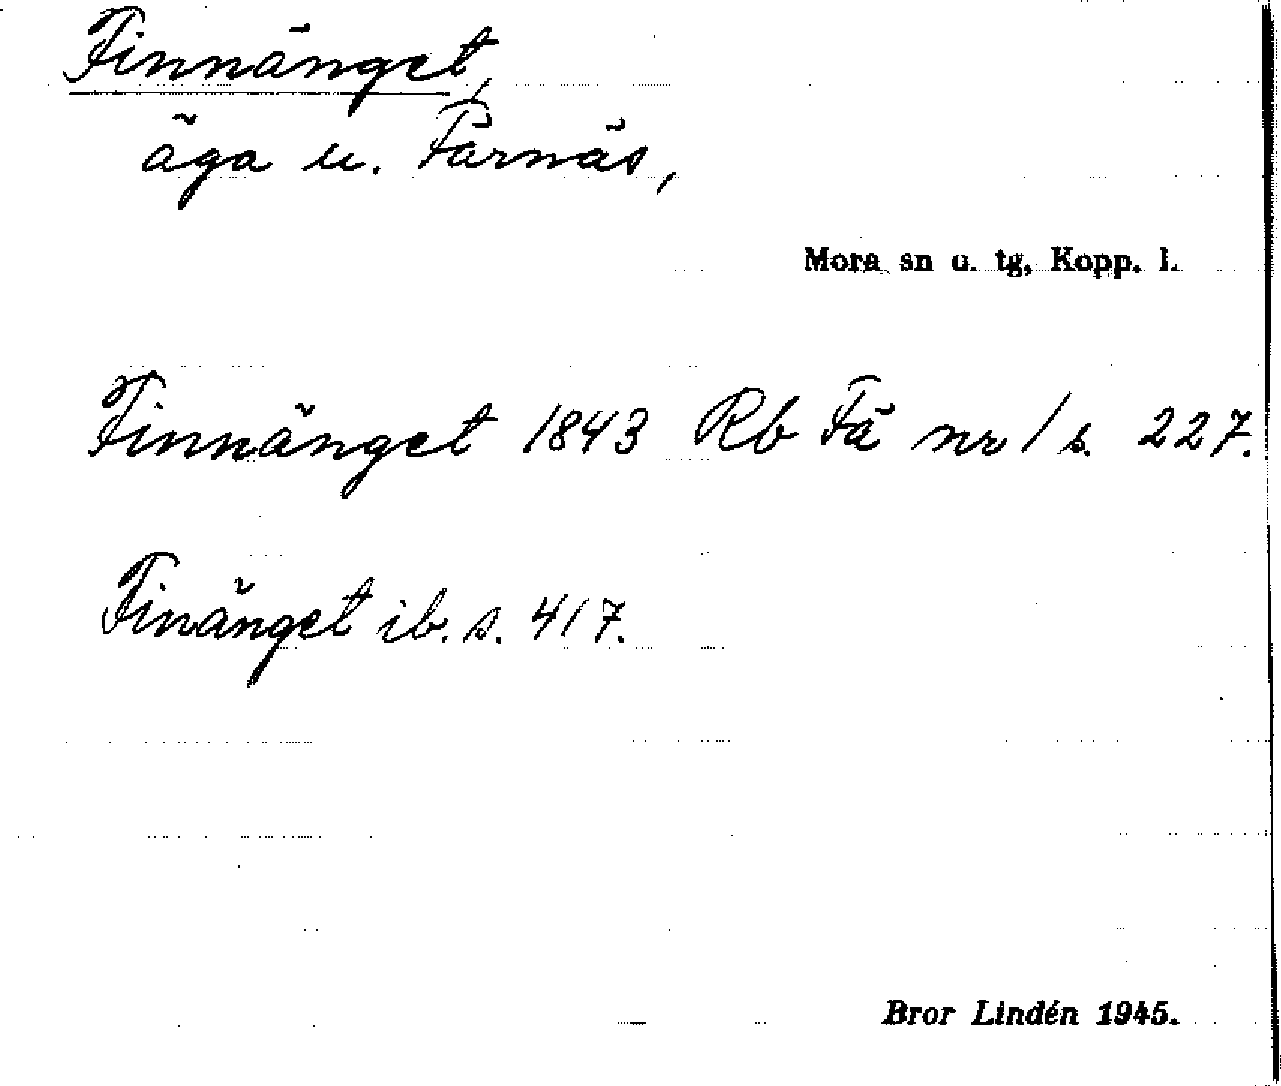 Finnänget,
äga u. Färnäs,
Mora sn o. tg, Kopp. l.
Finnänget 1843 Rb Fä nr 1 s. 227.
Finänget ib. s. 417.
Bror Lindén 1945.